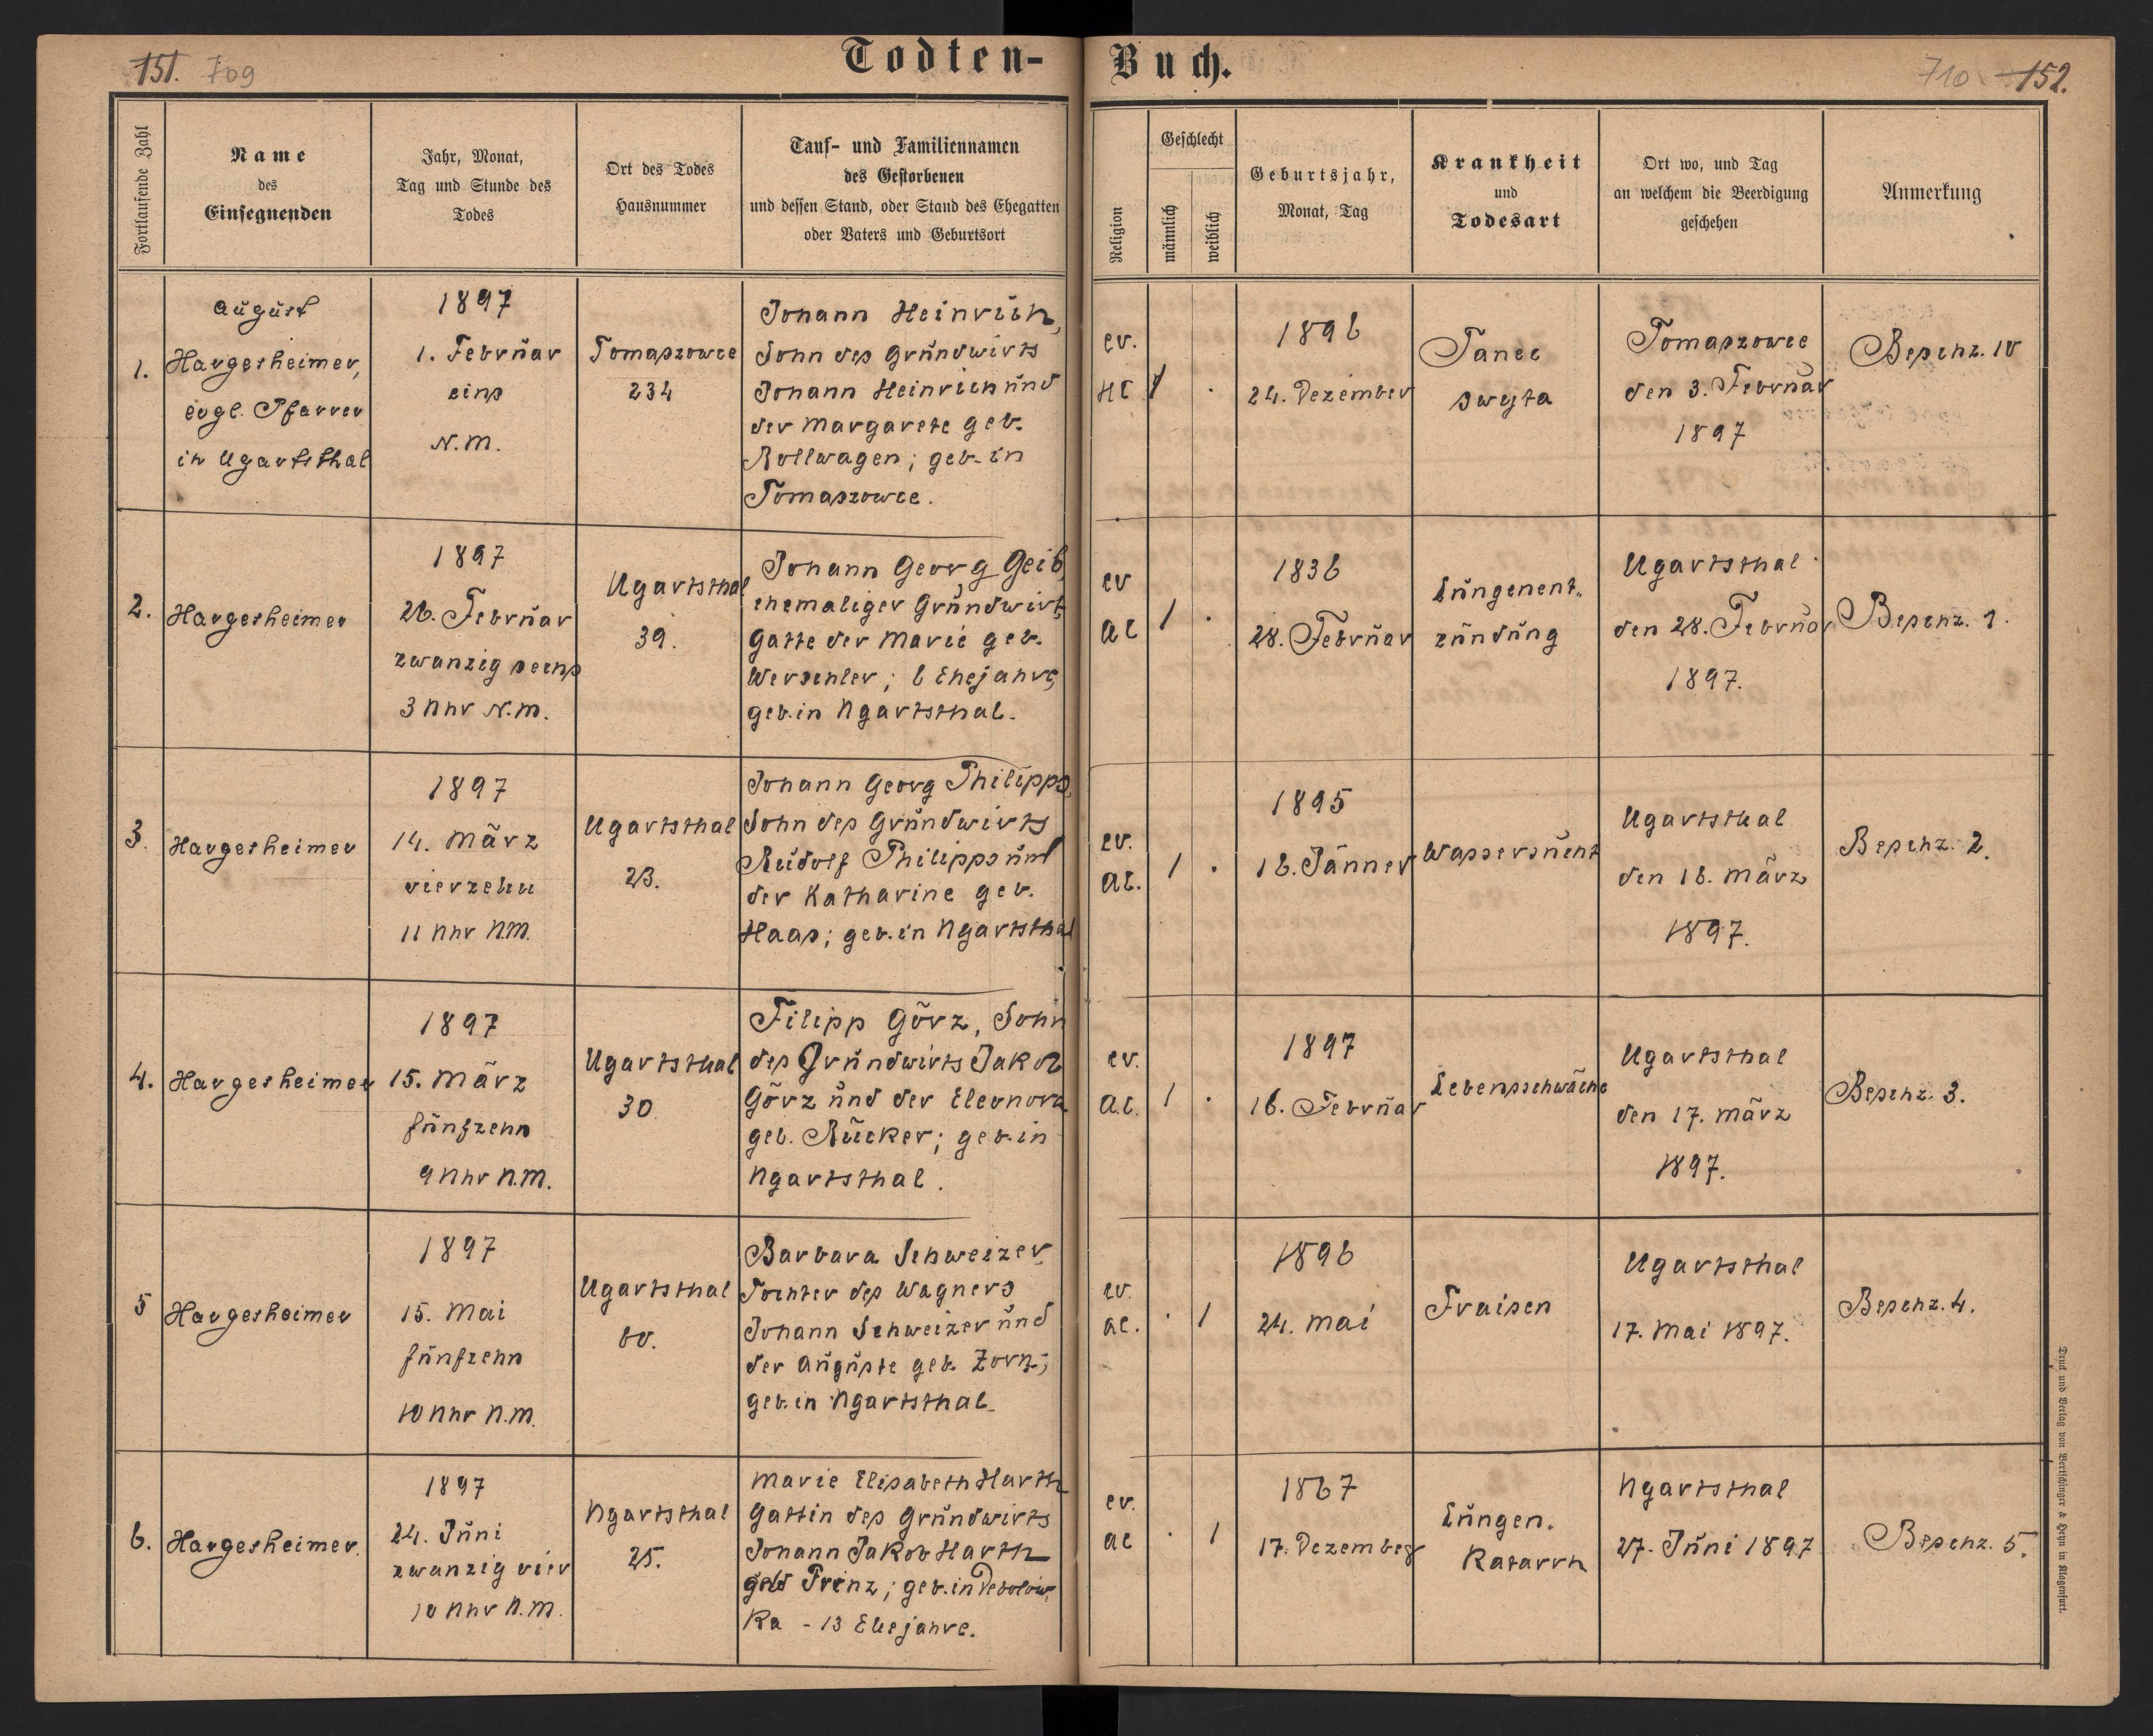 151. 709
Todten-
Buch.
710 152.
Fortlaufende Zahl
Name
des
Einsegnenden
Jahr, Monat,
Tag und Stunde des
Todes
Ort des Todes
Hausnummer
Tauf- und Familiennamen
des Gestorbenen
und dessen Stand, oder Stand des Ehegatten
oder Vaters und Geburtsort
Religion
Geschlecht
männlich
weiblich
Geburtsjahr,
Monat, Tag
Krankheit
und
Todesart
Ort wo, und Tag
an welchem die Beerdigung
geschehen
Anmerkung
1.
August
Hargesheimer,
evgl. Pfarrer
in Ugartsthal
1897
1. Februar
eins
N.M.
Tomaszowce
234
Johann Heinrich,
Sohn des Grundwirts
Johann Heinrich und
der Margarete geb.
Rollwagen; geb. in
Tomaszowce.
ev.
HC
1
.
1896
24. Dezember
Taniec
swięta
Tomaszowce
den 3. Februar
1897
Beschz. 10
2.
Hargesheimer
1897
26. Februar
zwanzig sechs
3 Uhr N.M.
Ugartsthal
39.
Johann Georg Geib,
ehemaliger Grundwirt,
Gatte der Marie geb.
Werschler; 6 Ehejahre,
geb. in Ugartsthal.
ev
AC
1
.
1836
28. Februar
Lungenent-
zündung
Ugartsthal
den 28. Februar
1897.
Beschz. 1.
3.
Hargesheimer
1897
14. März
vierzehn
11 Uhr N.M.
Ugartsthal
23.
Johann Georg Philipps,
Sohn des Grundwirts
Rudolf Philipps und
der Katharine geb.
Haas; geb. in Ugartsthal
ev.
AC.
1
.
1895
16. Jänner
Wassersucht
Ugartsthal
den 16. März
1897.
Beschz. 2.
4.
Hargesheimer
1897
15. März
fünfzehn
9 Uhr N.M.
Ugartsthal
30.
Filipp Görz, Sohn
des Grundwirts Jakob
Görz und der Eleonora
geb. Rücker; geb. in
Ugartsthal.
ev.
A.C.
1
.
1897
16. Februar
Lebensschwäche
Ugartsthal
den 17. März
1897.
Beschz. 3.
5
Hargesheimer
1897
15. Mai
fünfzehn
10 Uhr N.M.
Ugartsthal
60.
Barbara Schweizer,
Tochter des Wagners
Johann Schweizer und
der Auguste geb. Zorn;
geb. in Ugartsthal.
ev.
AC.
.
1
1896
24. Mai
Fraisen
Ugartsthal
17. Mai 1897.
Beschz. 4.
6.
Hargesheimer.
1897
24. Juni
zwanzig vier
10 Uhr N.M.
Ugartsthal
25.
Marie Elisabeth Harth
Gattin des Grundwirts
Johann Jakob Harth
geb. Prinz; geb. in Debolow-
ka - 13 Ehejahre.
ev.
AC
.
1
1867
17. Dezember
Lungen-
Katarrh
Ugartsthal
27. Juni 1897
Beschz. 5.
Druck und Verlag von Bertschinger & Heyn in Klagenfurt.